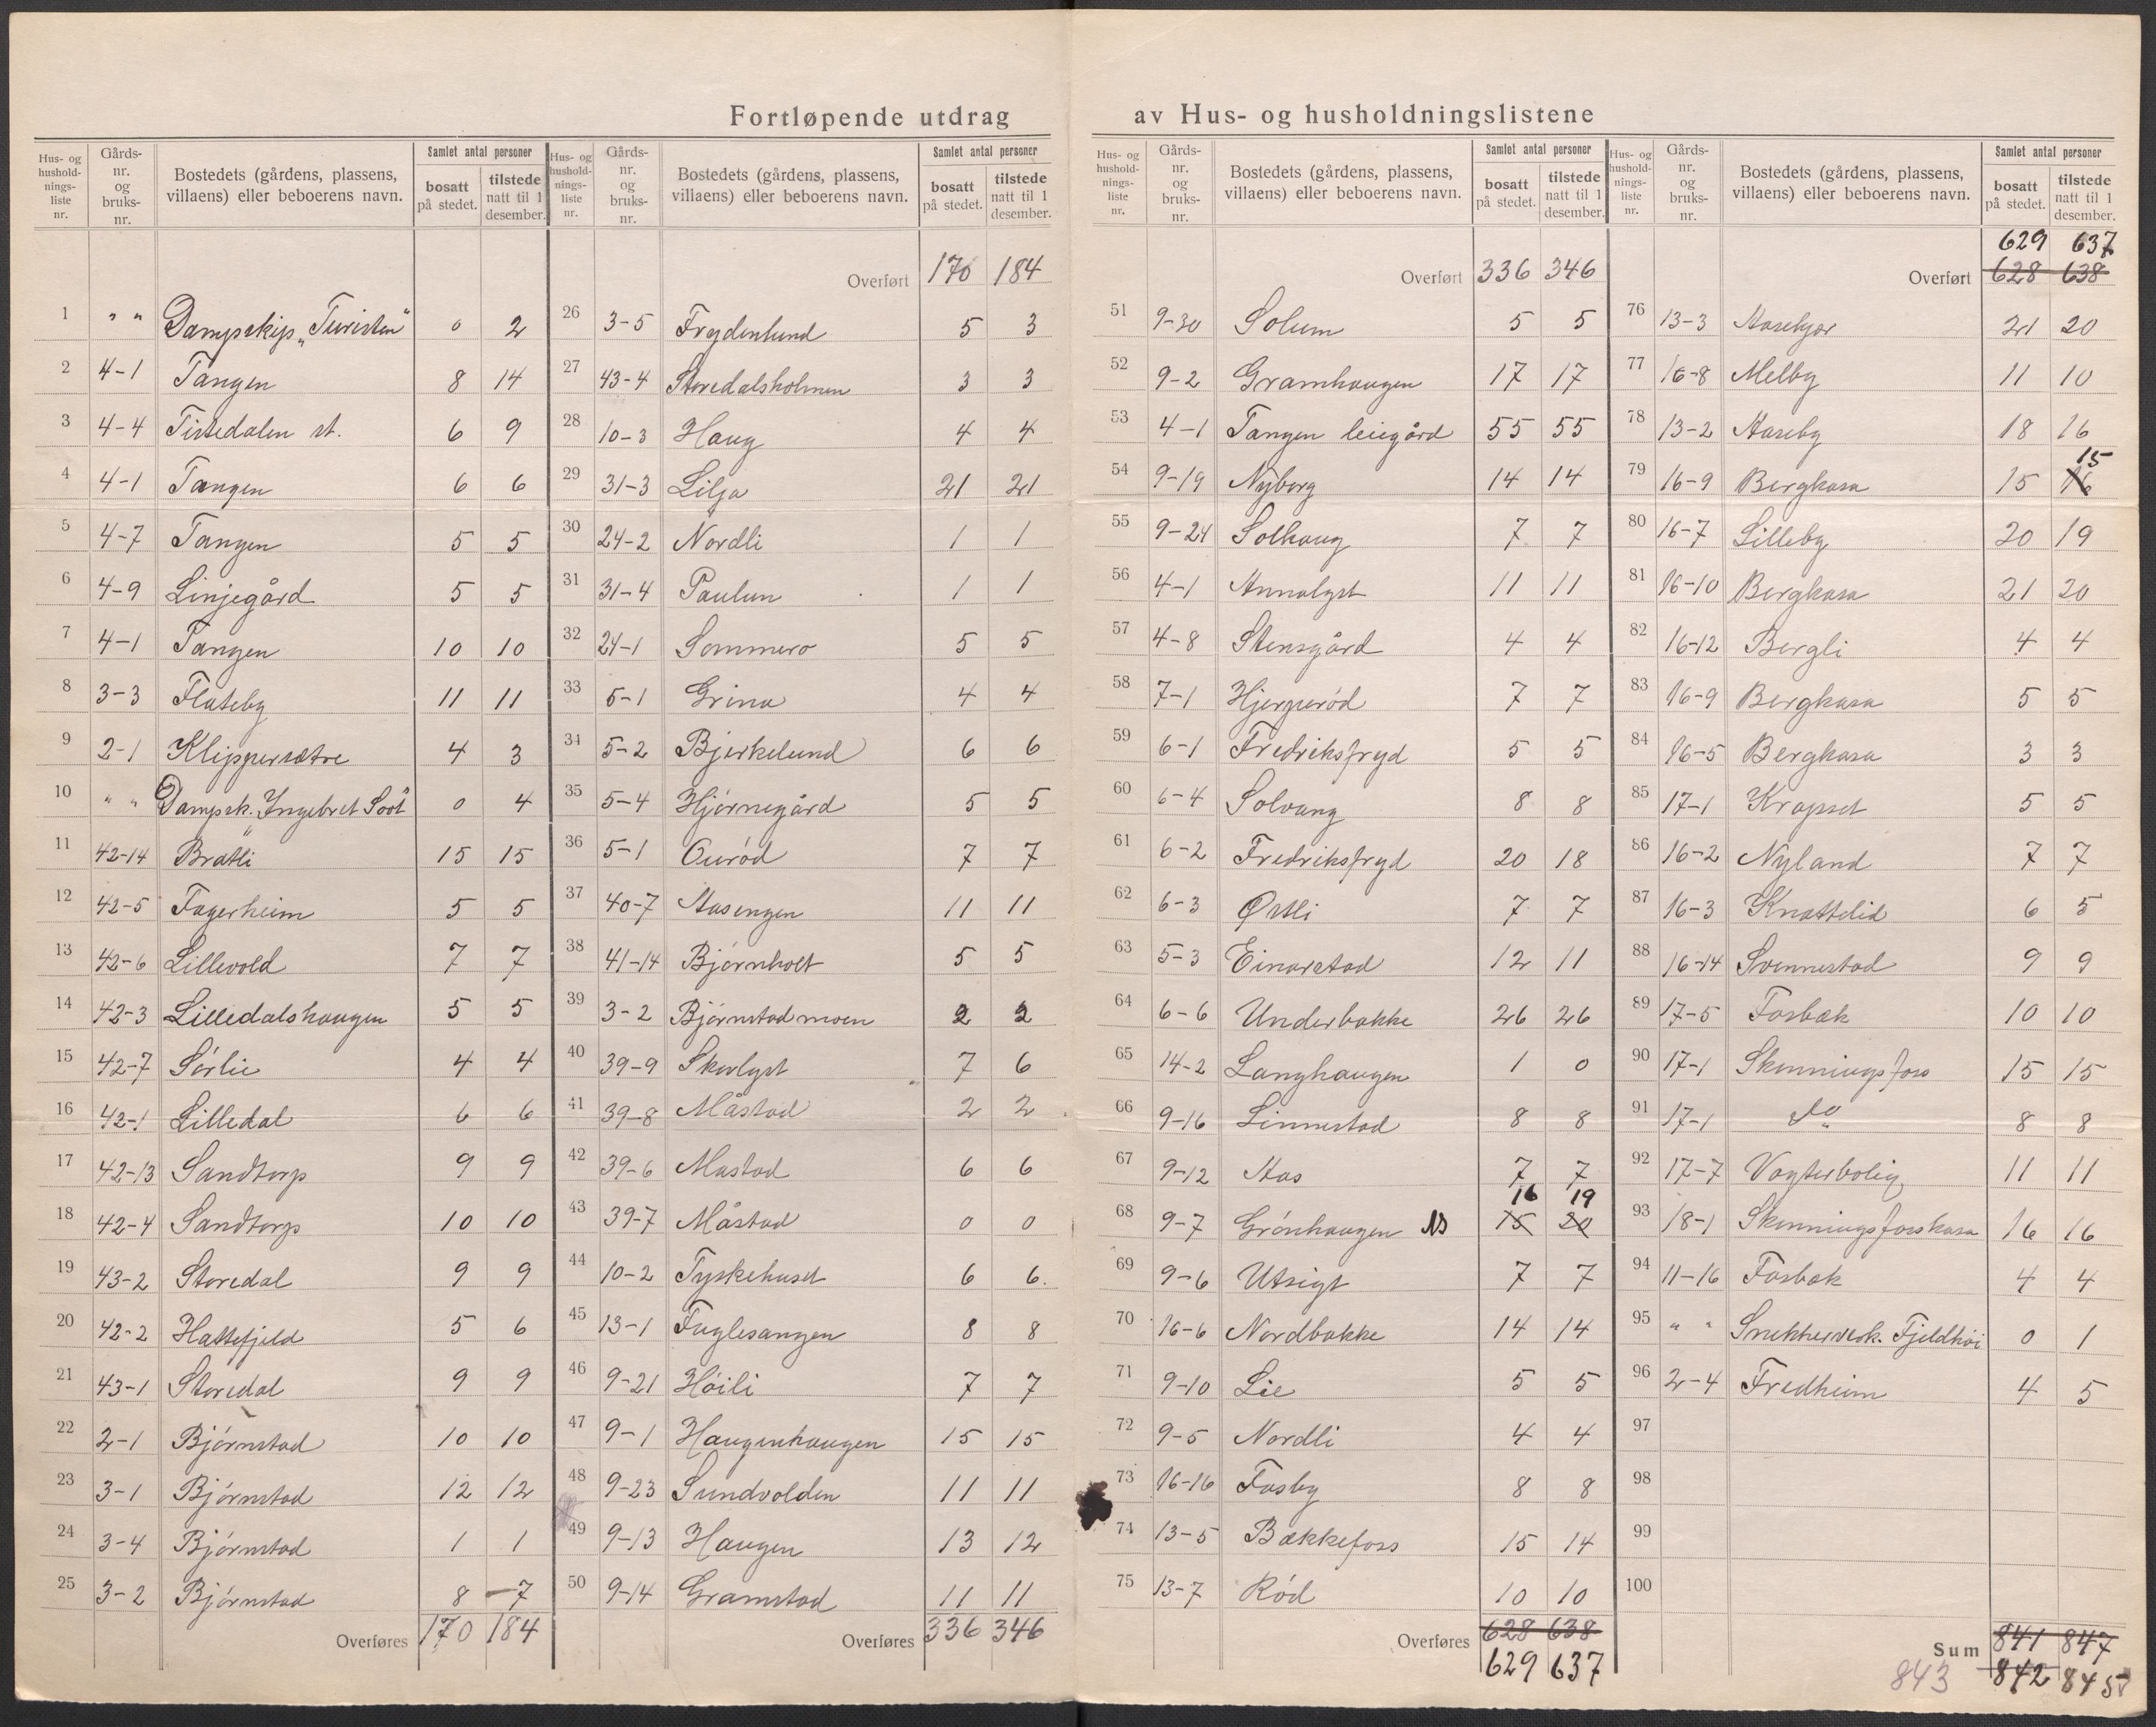 Fortløpende utdrag av Hus- og husholdningslistene
Hus- og husholdnings-liste nr. | Gårds-nr. og bruks-nr. | Bostedets (gårdens, plassens, villaens) eller beboerens navn. | Samlet antal personer bosatt på stedet. | tilstede natt til 1 desember.
1 " " Dampskip „Turisten" 0 2
2 4-1 Tangen 8 14
3 4-4 Tistedalen st. 6 9
4 4-1 Tangen 6 6
5 4-7 Tangen 5 5
6 4-9 Linjegård 5 5
7 4-1 Tangen 10 10
8 3-3 Flateby 11 11
9 2-1 Klippersætre 4 3
10 " " Dampsk. „Ingebret Soot" 0 4
11 42-14 Bratli 15 15
12 42-5 Fagerheim 5 5
13 42-6 Lillevold 7 7
14 42-3 Lilledalshaugen 5 5
15 42-7 Sørlie 4 4
16 42-1 Lilledal 6 6
17 42-13 Sandtorp 9 9
18 42-4 Sandtorp 10 10
19 43-2 Storedal 9 9
20 42-2 Hattefjeld 5 6
21 43-1 Storedal 9 9
22 2-1 Bjørnstad 10 10
23 3-1 Bjørnstad 12 12
24 3-4 Bjørnstad 1 1
25 3-2 Bjørnstad 8 7
Overføres 170 184
Hus- og husholdnings-liste nr. | Gårds-nr. og bruks-nr. | Bostedets (gårdens, plassens, villaens) eller beboerens navn. | Samlet antal personer bosatt på stedet. | tilstede natt til 1 desember.
Overført 170 184
26 3-5 Frydenlund 5 3
27 43-4 Storedalsholmen 3 3
28 10-3 Haug 4 4
29 31-3 Lilja 21 21
30 24-2 Nordli 1 1
31 31-4 Paulun 1 1
32 24-1 Sommero 5 5
33 5-1 Grina 4 4
34 5-2 Bjerkelund 6 6
35 5-4 Hjørnegård 5 5
36 5-1 Ourød 7 7
37 40-7 Aasengen 11 11
38 41-14 Bjørnholt 5 5
39 3-2 Bjørnstadmoen 2 2
40 39-9 Skovlyst 7 6
41 39-8 Måstad 2 2
42 39-6 Mastad 6 6
43 39-7 Måstad 0 0
44 10-2 Tyskehuset 6 6.
45 13-1 Fuglesangen 8 8
46 9-21 Høili 7 7
47 9-1 Haugenhaugen 15 15
48 9-23 Sundvolden 11 11
49 9-13 Haugen 13 12
50 9-14 Gramstad 11 11
Overføres 336 346
Hus- og husholdnings-liste nr. | Gårds-nr. og bruks-nr. | Bostedets (gårdens, plassens, villaens) eller beboerens navn. | Samlet antal personer bosatt på stedet. | tilstede natt til 1 desember.
Overført 336 346
51 9-30 Solum 5 5
52 9-2 Gramhaugen 17 17
53 4-1 Tangen leiegård 55 55
54 9-19 Nyborg 14 14
55 9-24 Solhaug 7 7
56 4-1 Annalyst 11 11
57 4-8 Stensgård 4 4
58 7-1 Hjerperød 7 7
59 6-1 Fredriksfryd 5 5
60 6-4 Solvang 8 8
61 6-2 Fredriksfryd 20 18
62 6-3 Østli 7 7
63 5-3 Einarstad 12 11
64 6-6 Underbakke 26 26
65 14-2 Langhaugen 1 0
66 9-16 Linnestad 8 8
67 9-12 Aas 7 7
16 19
68 9-7 Grønhaugen 15 20
69 9-6 Utsigt 7 7
70 16-6 Nordbakke 14 14
71 9-10 Lie 5 5
72 9-5 Nordli 4 4
73 16-16 Fosby 8 8
74 13-5 Bækkefors 15 14
75 13-7 Rød 10 10
Overføres 628 638
629 637
Hus- og husholdnings-liste nr. | Gårds-nr. og bruks-nr. | Bostedets (gårdens, plassens, villaens) eller beboerens navn. | Samlet antal personer bosatt på stedet. | tilstede natt til 1 desember.
629 637
Overført 628 638
76 13-3 Aasebyør 21 20
77 16-8 Melby 11 10
78 13-2 Aaseby 18 16
15
79 16-9 Bergkasa 15 16
80 16-7 Lilleby 20 19
81 16-10 Bergkasa 21 20
82 16-12 Bergli 4 4
83 16-9 Bergkasa 5 5
84 16-5 Bergkasa 3 3
85 17-1 Krapset 5 5
86 16-2 Nyland 7 7
87 16-3 Knattelid 6 5
88 16-14 Svennestad 9 9
89 17-5 Fosbæk 10 10
90 17-1 Skonningsfoss 15 15
91 17-1 do 8 8
92 17-7 Vogterbolig 11 11
93 18-1 Skonningsfosskasa 16 16
94 11-16 Fosbæk 4 4
95 " " Snekkerversk. Fjeldhøi 0 1
96 2-4 Fredheim 4 5
97
98
99
100
Sum 841 847
843 842 845